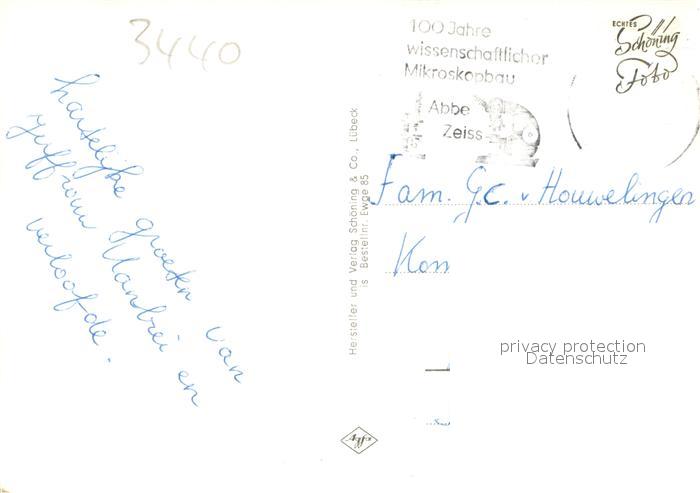 3440
100 Jahre
wissenschaftlicher
Mikroskopbau
Abbe
Zeiss
ECHTES
Schöning
Foto
hartelijke groeten van
juffrouw en
verloofde.
Hersteller und Verlag Schöning & Co., Lübeck
is Bestellnr. Ewge 85
Fam. G.C. v Houwelingen
Kon
privacy protection
Datenschutz
Agfa